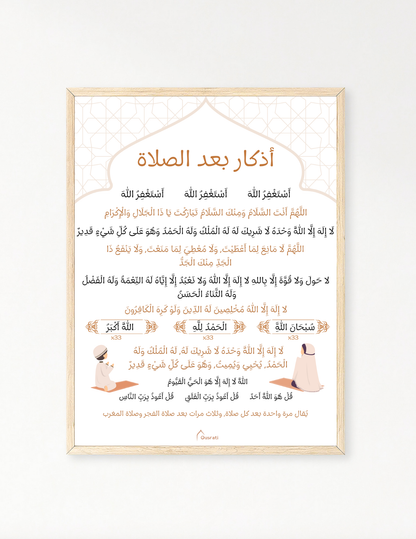 أذكار بعد الصلاة
أَسْتَغْفِرُ اللَّهَ أَسْتَغْفِرُ اللَّهَ أَسْتَغْفِرُ اللَّهَ
اللَّهُمَّ أَنْتَ السَّلَامُ وَمِنْكَ السَّلَامُ تَبَارَكْتَ يَا ذَا الْجَلَالِ وَالْإِكْرَامِ
لَا إِلَهَ إِلَّا اللَّهُ وَحْدَهُ لَا شَرِيكَ لَهُ لَهُ الْمُلْكُ وَلَهُ الْحَمْدُ وَهُوَ عَلَى كُلِّ شَيْءٍ قَدِيرٌ
اللَّهُمَّ لَا مَانِعَ لِمَا أَعْطَيْتَ, وَلَا مُعْطِيَ لِمَا مَنَعْتَ, وَلَا يَنْفَعُ ذَا
الْجَدِّ مِنْكَ الْجَدُّ
لَا حَوْلَ وَلَا قُوَّةَ إِلَّا بِاللهِ لَا إِلَهَ إِلَّا اللَّهُ وَلَا نَعْبُدُ إِلَّا إِيَّاهُ لَهُ النِّعْمَةُ وَلَهُ الْفَضْلُ
وَلَهُ الثَّنَاءُ الْحَسَنُ
لَا إِلَهَ إِلَّا اللَّهُ مُخْلِصِينَ لَهُ الدِّينَ وَلَوْ كَرِهَ الْكَافِرُونَ
سُبْحَانَ اللَّهِ الْحَمْدُ لِلَّهِ اللَّهُ أَكْبَرُ
x33 x33 x33
لَا إِلَهَ إِلَّا اللَّهُ وَحْدَهُ لَا شَرِيكَ لَهُ, لَهُ الْمُلْكُ وَلَهُ
الْحَمْدُ, يُحْيِي وَيُمِيتُ, وَهُوَ عَلَى كُلِّ شَيْءٍ قَدِيرٌ
اللَّهُ لَا إِلَهَ إِلَّا هُوَ الْحَيُّ الْقَيُّومُ
قُلْ هُوَ اللَّهُ أَحَدٌ قُلْ أَعُوذُ بِرَبِّ الْفَلَقِ قُلْ أَعُوذُ بِرَبِّ النَّاسِ
يُقال مرة واحدة بعد كل صلاة, وثلاث مرات بعد صلاة الفجر وصلاة المغرب